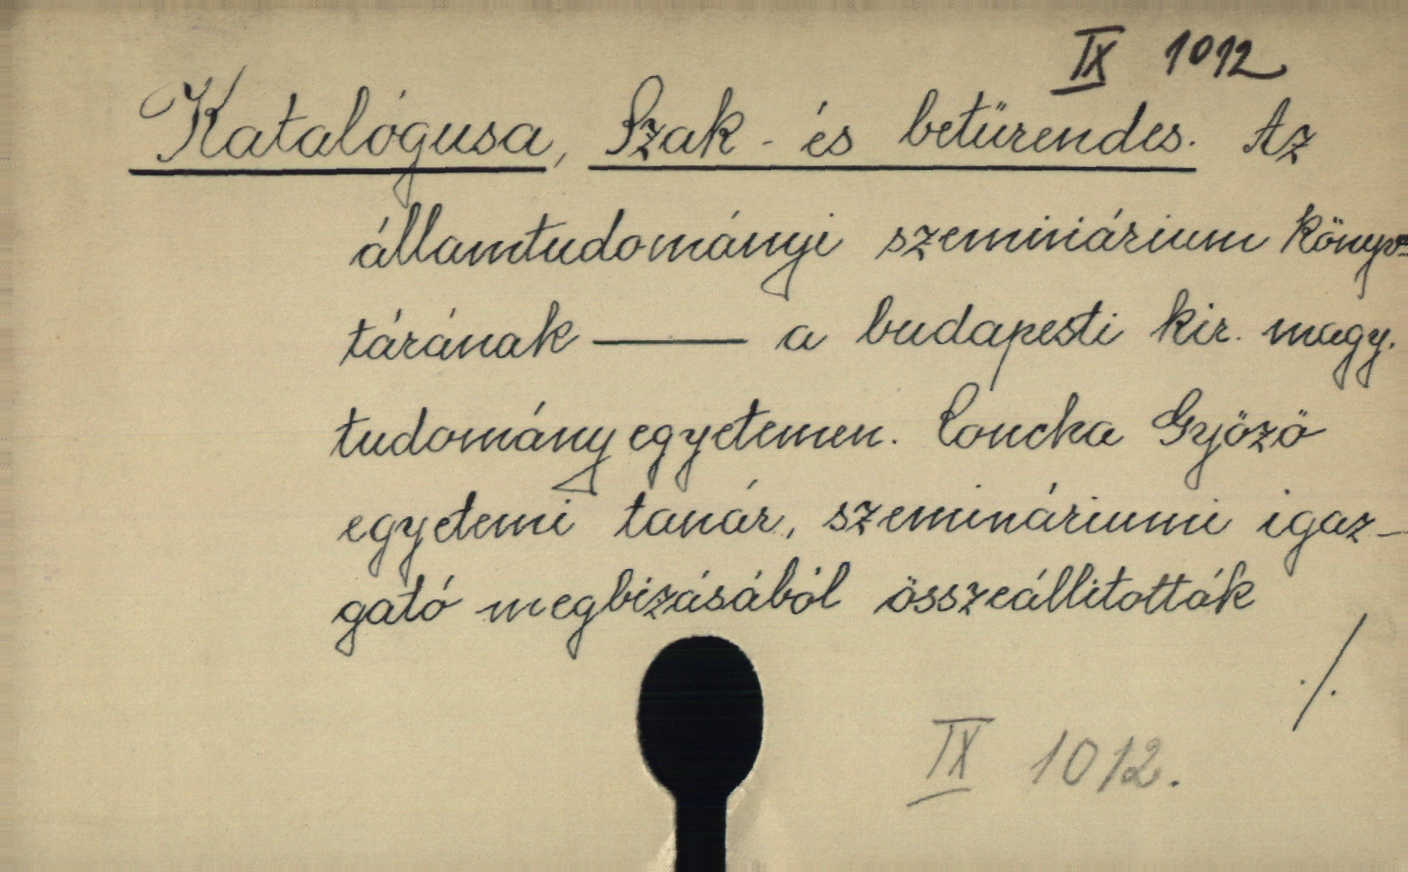 IX 1012
Katalógusa, Szak- és betürendes. Az
államtudományi szemináárium könyv=
tárának —— a budapesti kir. magy.
tudományegyetemen. Concha Győző
egyetemi tanár, szemináriumi igaz-
gató megbizásából összeállitották
./.
IX 1012.